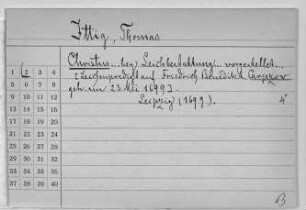 Ittig, Thomas
Christus... bey Leichbestattung... vorgestellet...
[Leichenpredigt auf Friedrich Benedikt Carpzov
geh. am 23. Mai 1699]
Leipzig (1699). 4°
1 2 3 4
5 6 7 8
9 10 11 12
13 14 15 16
17 18 19 20
21 22 23 24
25 26 27 28
29 30 31 32
33 34 35 36
37 38 39 40
B